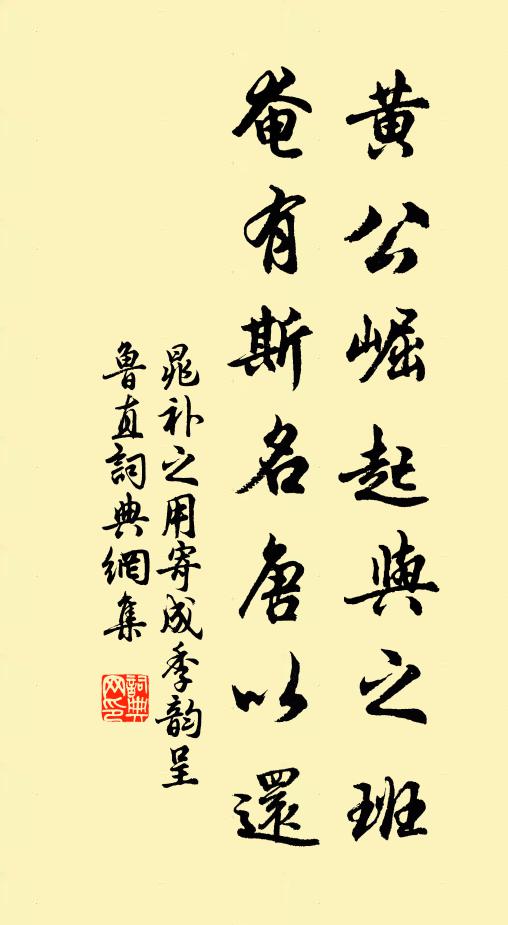 黃公崛起與之班
奄有斯名唐以還
晁補之用寄成季韵呈
魯直詞典網集
詞典网印